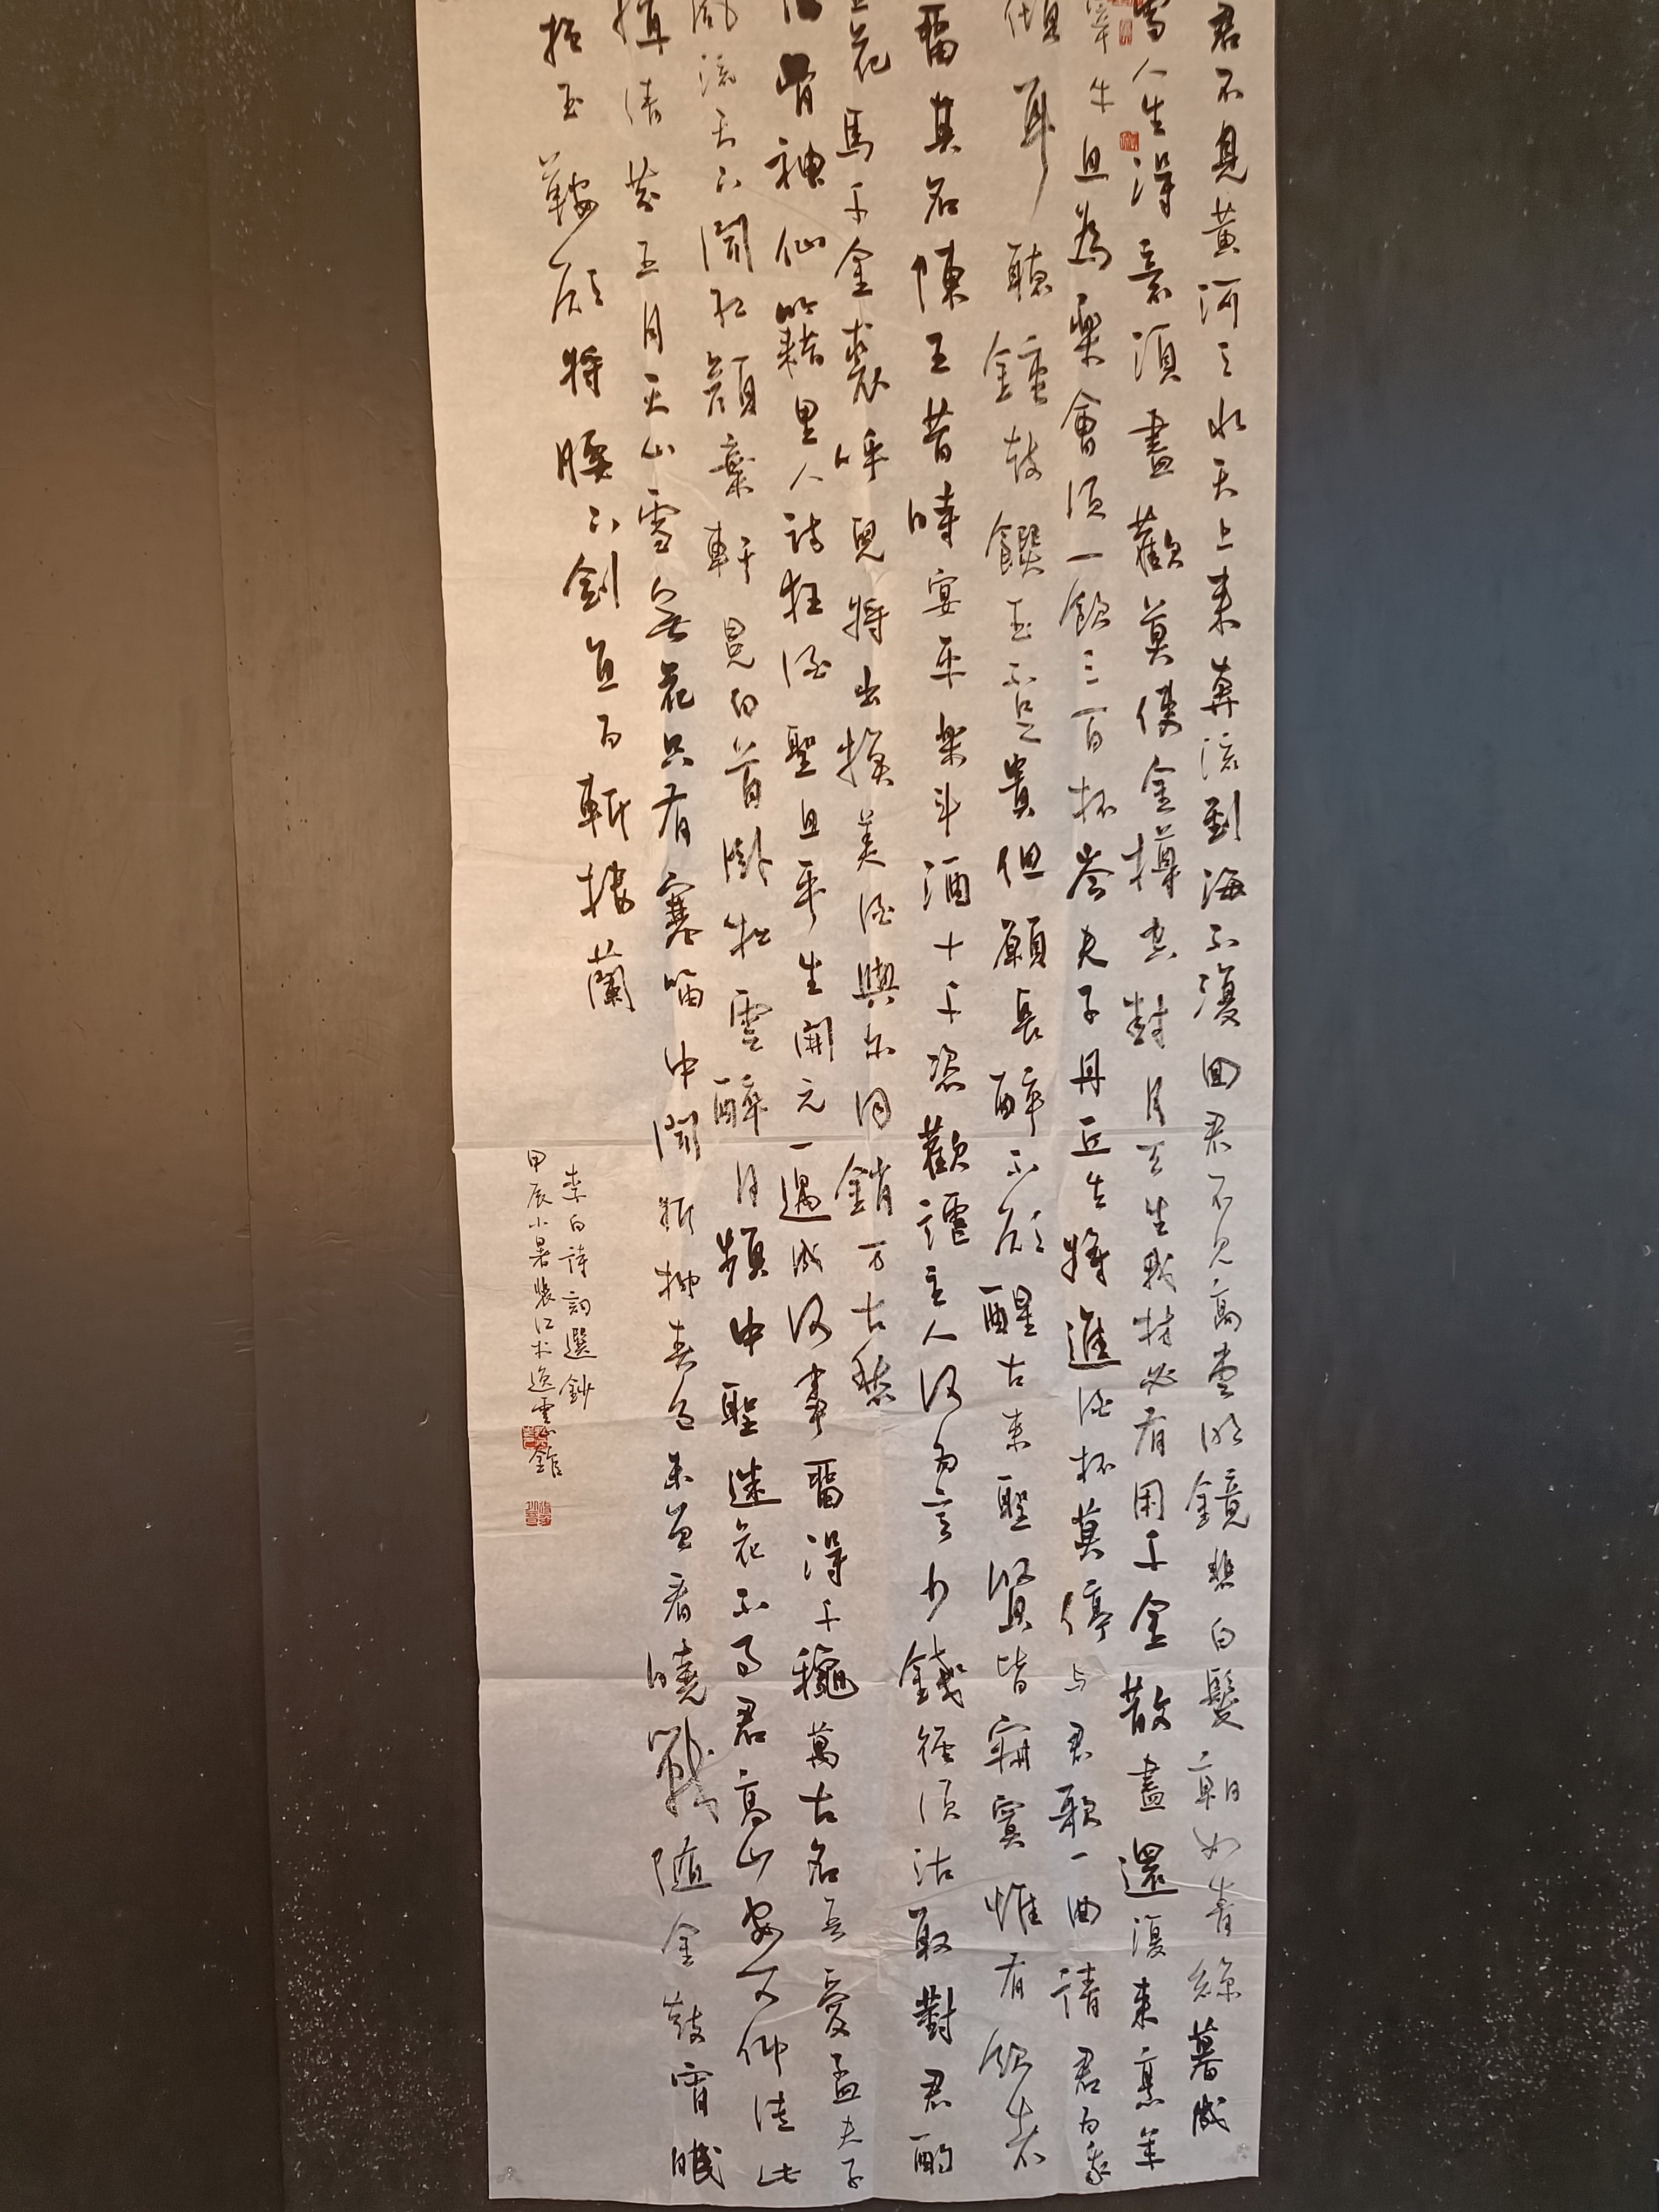 君不見黃河之水天上來奔流到海不復回君不見高堂明鏡悲白髮朝如青絲暮成
雪人生得意須盡歡莫使金樽空對月天生我材必有用千金散盡還復來烹羊
宰牛且為樂會須一飲三百杯岑夫子丹丘生將進酒杯莫停与君歌一曲請君為我
傾耳聽鐘鼓饌玉不足貴但願長醉不願醒古來聖賢皆寂寞惟有飲者
留其名陳王昔時宴平樂斗酒十千恣歡謔主人何為言少錢徑須沽取對君酌
花馬千金裘呼兒將出換美酒與尔同銷万古愁
骨神仙籍里人詩狂酒聖且平生開元一遇成何事留得千穐萬古名吾愛孟夫子
風流天下聞紅顏棄軒冕白首臥松雲醉月頻中聖迷花不事君高山安可仰徒此
揖清芬五月天山雪無花只有寒笛中聞折柳春色未曾看曉戰隨金鼓宵眠
抱玉鞍願將腰下劍直為斬樓蘭
李白詩詞選鈔
甲辰小暑張江木逸雲館